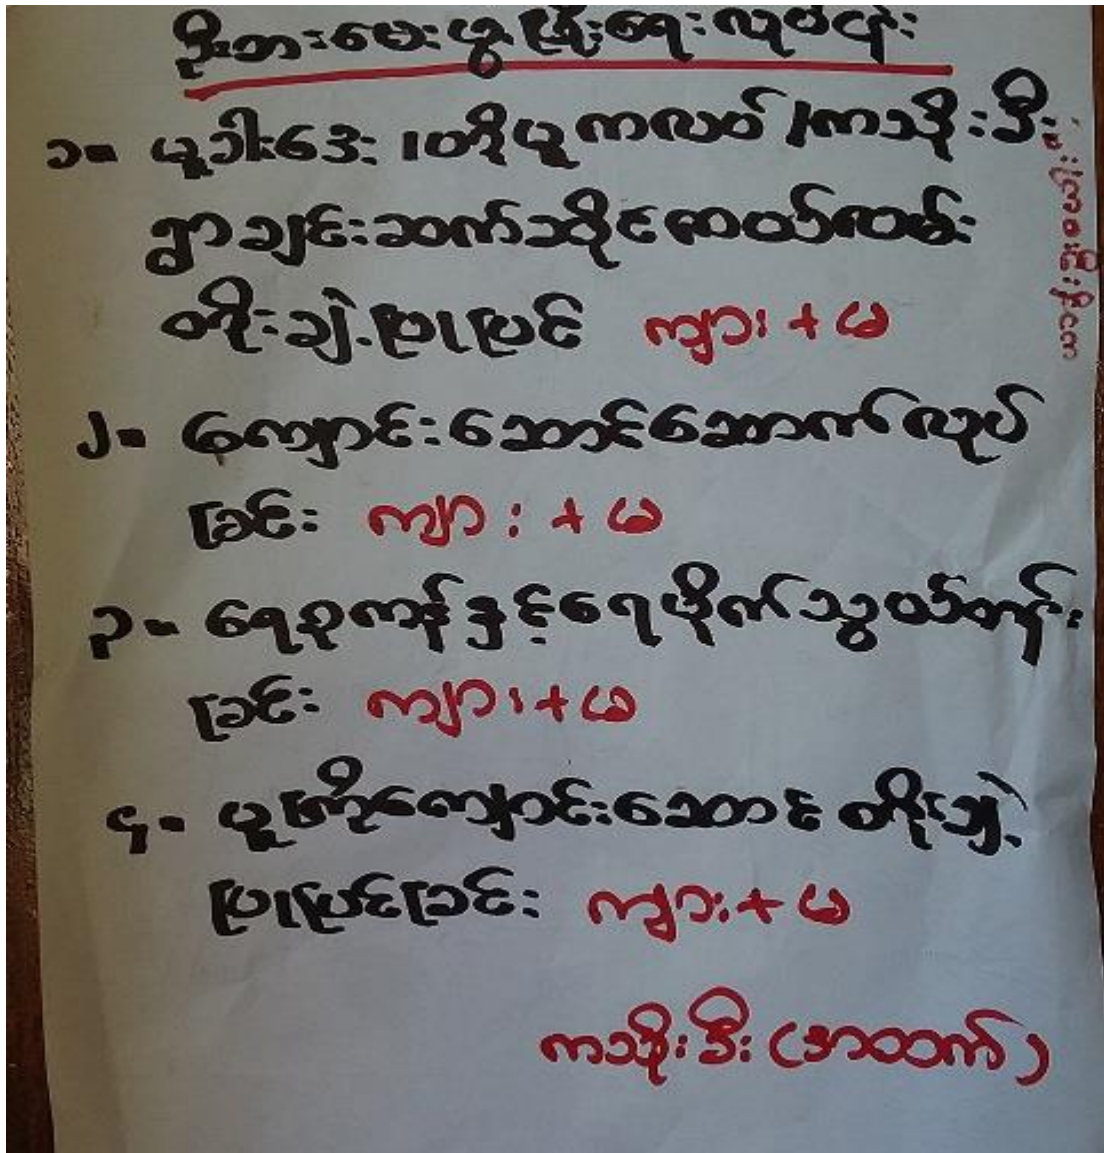 ဦးစားပေးဖွံ့ဖြိုးရေးလုပ်ငန်း
၁။ ယူဒါးဒေး၊ တီယူကလပ်၊ ကသိုးဒီး
ရွာချင်းဆက်သိုင်းကယ်လမ်း
တိုးချဲ့ပြုပြင် ကျား + မ
၂။ ကျောင်းဆောင်ဆောက်လုပ်
ခြင်း ကျား + မ
၃။ ရေစုကန်နှင့်ရေပိုက်သွယ်တန်း
ခြင်း ကျား + မ
၄။ မူကြိုကျောင်းဆောင် တိုးချဲ့
ပြုပြင်ခြင်း ကျား + မ
ကသိုးဒီး (အထက်)